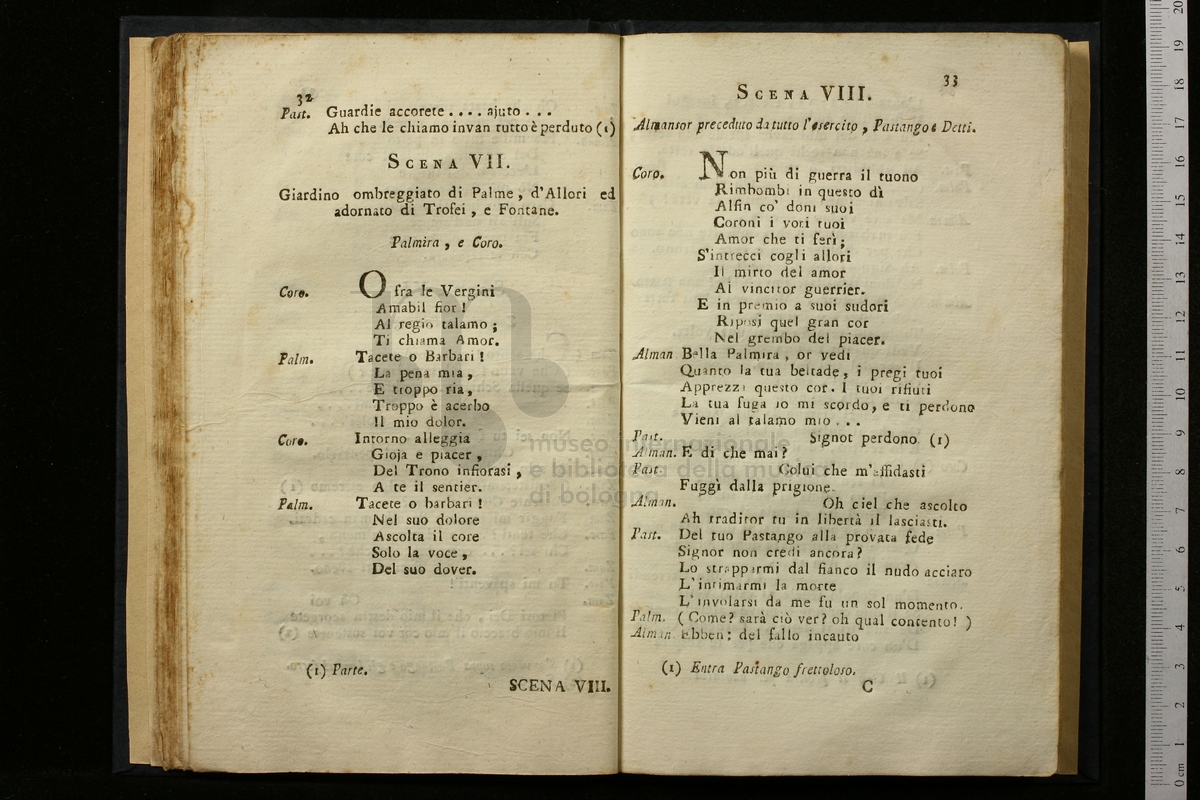 32
Past. Guardie accorete .... ajuto ...
Ah che le chiamo invan tutto è perduto (1)
SCENA VII.
Giardino ombreggiato di Palme, d'Allori ed
adornato di Trofei, e Fontane.
Palmira, e Coro.
Coro. O fra le Vergini
Amabil fior!
Al regio talamo;
Ti chiama Amor.
Palm. Tacete o Barbari!
La pena mia,
E troppo ria,
Troppo è acerbo
Il mio dolor.
Coro. Intorno alleggia
Gioja e piacer,
Del Trono infiorasi,
A te il sentier.
Palm. Tacete o barbari!
Nel suo dolore
Ascolta il core
Solo la voce,
Del suo dover.
(1) Parte.
SCENA VIII.
33
SCENA VIII.
Almansor preceduto da tutto l'esercito, Pastango e Detti.
Coro. Non più di guerra il tuono
Rimbombi in questo dì
Alfin co' doni suoi
Coroni i voti tuoi
Amor che ti ferì;
S'intrecci cogli allori
Il mirto del amor
Al vincitor guerrier.
E in premio a suoi sudori
Riposi quel gran cor
Nel grembo del piacer.
Alman Bella Palmira, or vedi
Quanto la tua beltade, i pregi tuoi
Apprezzi questo cor. I tuoi rifiuti
La tua fuga io mi scordo, e ti perdono
Vieni al talamo mio ...
Past. Signot perdono (1)
Alman. E di che mai?
Past. Colui che m'affidasti
Fuggì dalla prigione.
Alman. Oh ciel che ascolto
Ah traditor tu in libertà il lasciasti.
Past. Del tuo Pastango alla provata fede
Signor non credi ancora?
Lo strapparmi dal fianco il nudo acciaro
L'intimarmi la morte
L'involarsi da me fu un sol momento.
Palm. (Come? sarà ciò ver? oh qual contento!)
Alman. Ebben: del fallo incauto
(1) Entra Pastango frettoloso.
C
museo internazionale
e biblioteca della musica
di bologna
0 cm 1 2 3 4 5 6 7 8 9 10 11 12 13 14 15 16 17 18 19 20